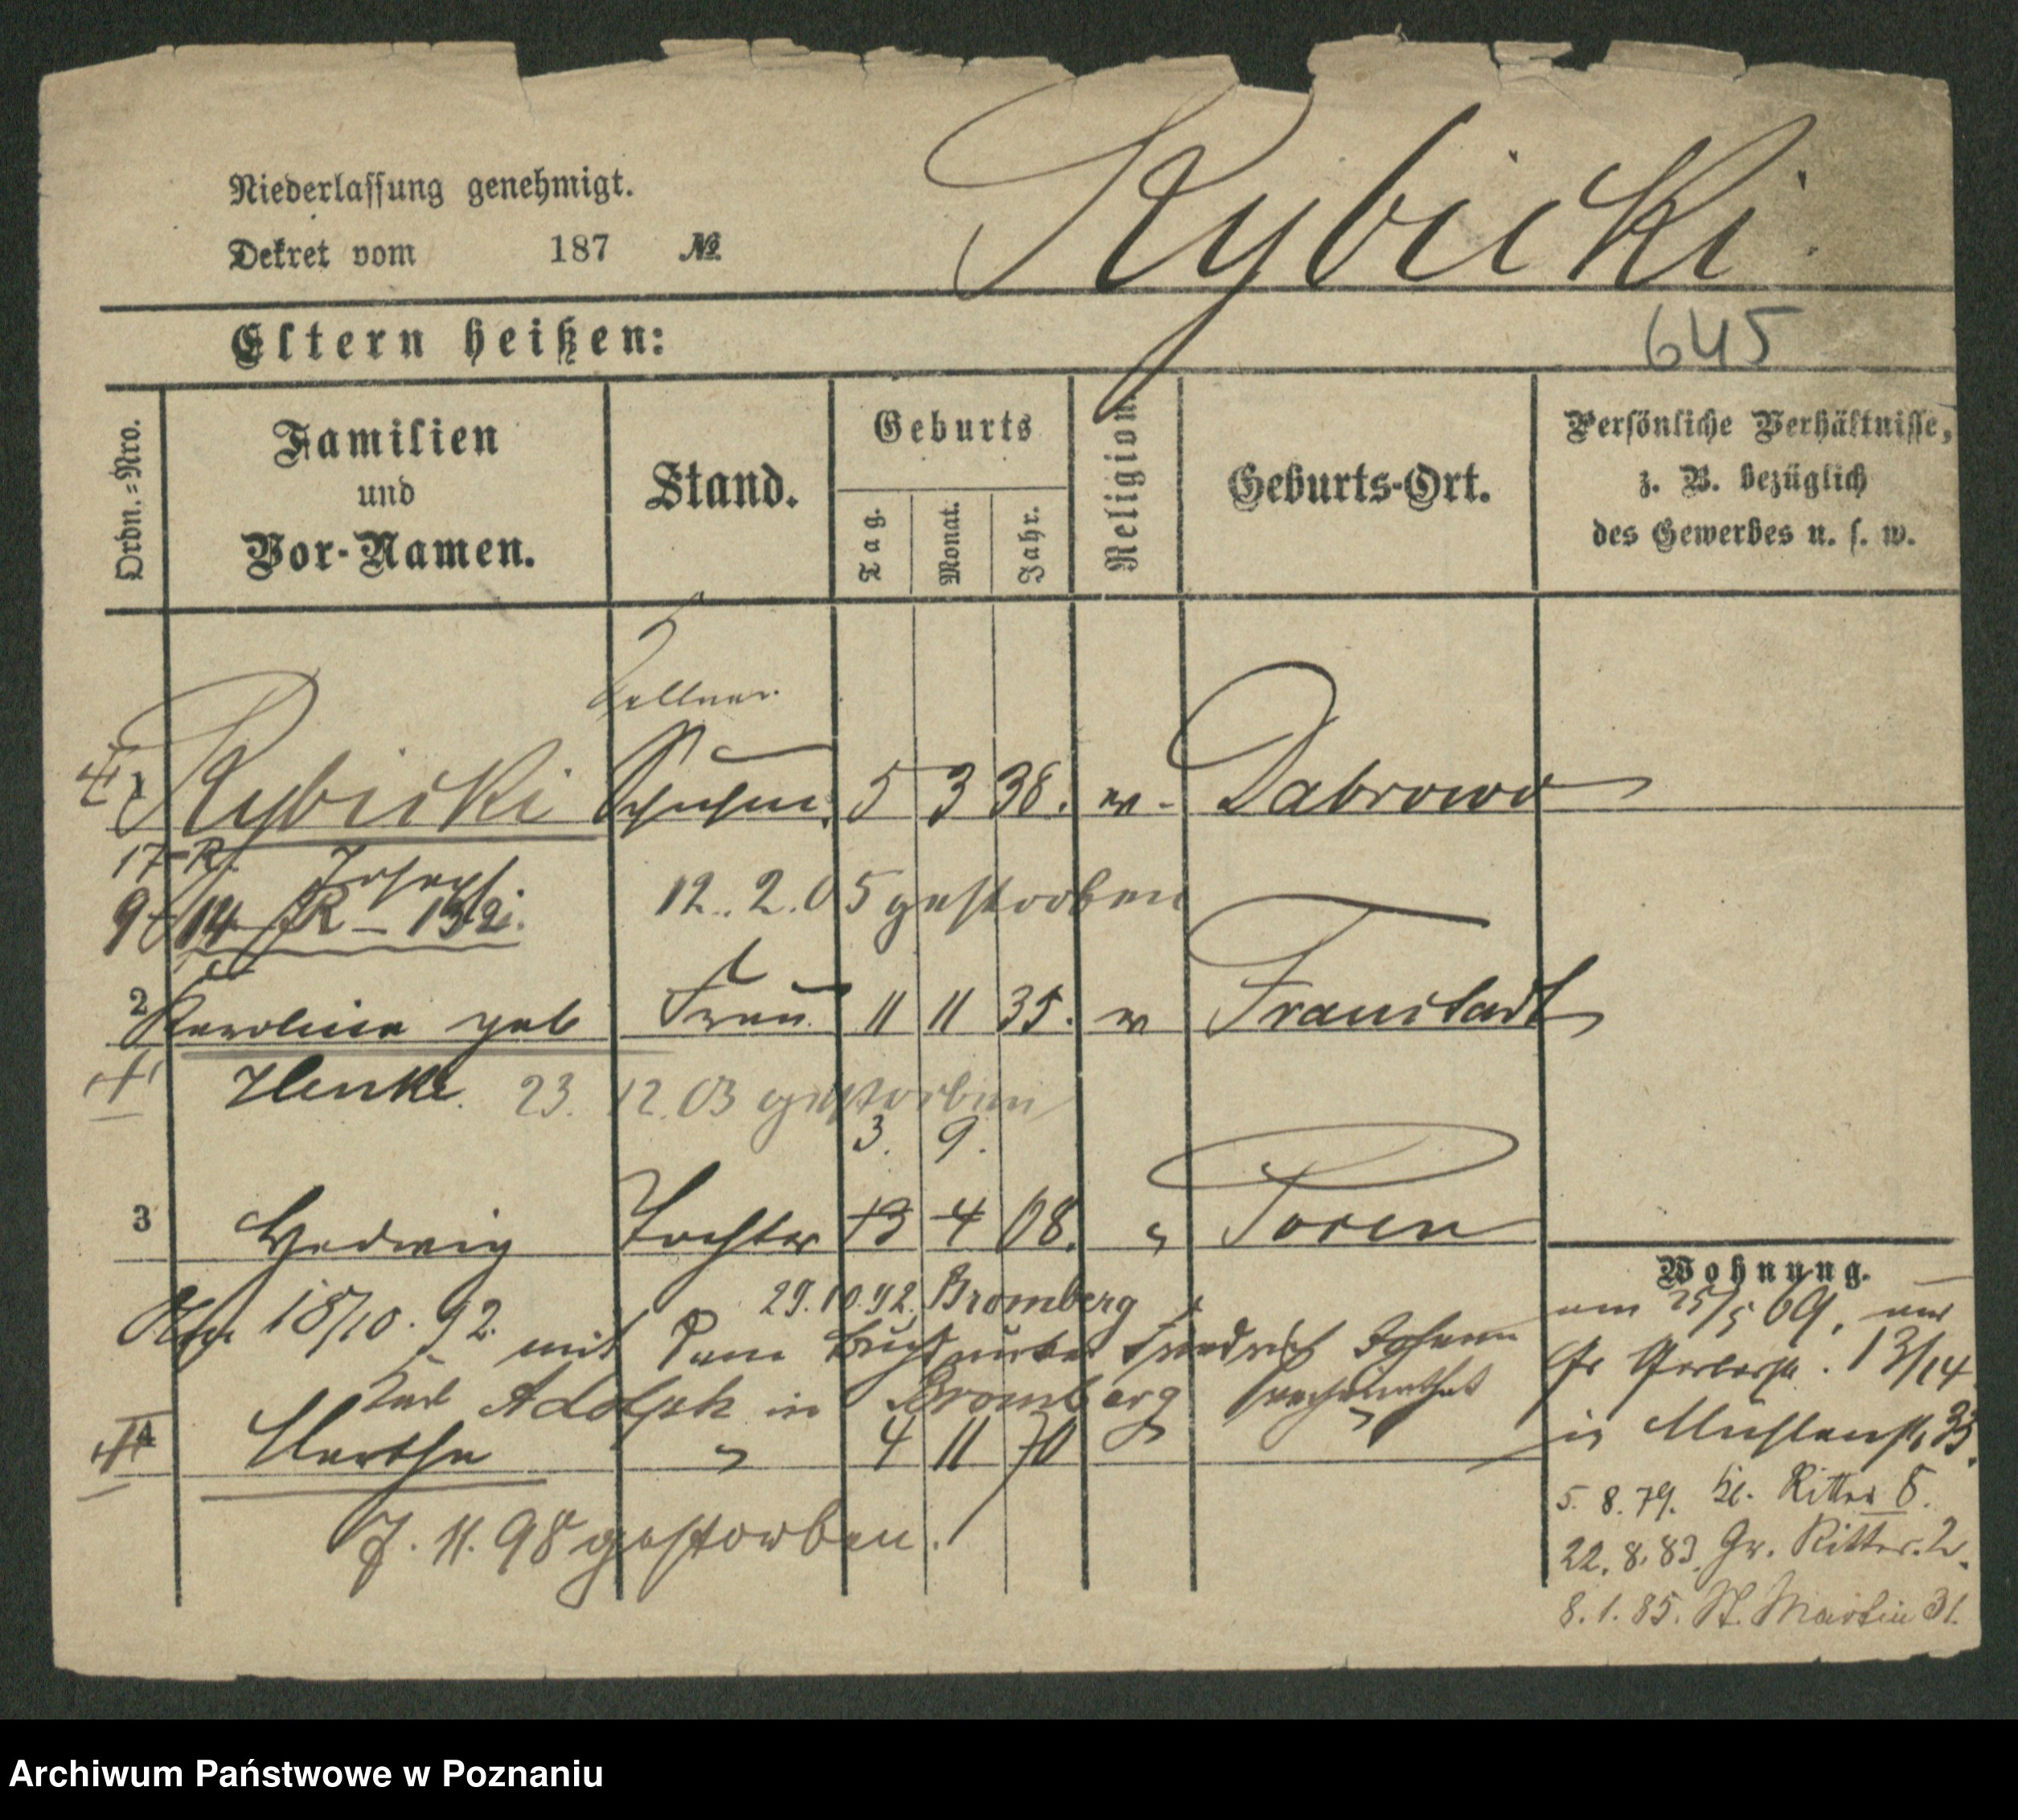 Rybicki
Niederlassung genehmigt.
Dekret vom 187 №
Eltern heißen:
645
Ordn.=Nro.
Familien
und
Vor-Namen.
Stand.
Geburts
Tag.
Monat.
Jahr.
Religion.
Geburts-Ort.
Persönliche Verhältnisse,
z. B. bezüglich
des Gewerbes u. s. w.
Kellner
Rybicki 5 3 38. Dabrowo
17
Joseph
12. 2. 05 gestorben
2 Karolina geb Frau 11 11 35. Fraustadt
Henke. 23. 12. 03 gestorben
3. 9.
3 Hedwig Tochter 13 4 68. " Posen
29.10.92. Bromberg
18/10. 92. mit dem Friedrich Johann
Adolph in Bromberg verheirathet
4 Martha " 4 11 70 " "
7. 11. 98 gestorben.
Wohnung.
am 25/5 69, aus
Gr Gerberstr. 13/14
in Mühlenstr 33.
5. 8. 79. Kl. Ritter 8.
22. 8. 83. Gr. Ritter. 2.
8. 1. 85. St. Martin 31.
Archiwum Państwowe w Poznaniu